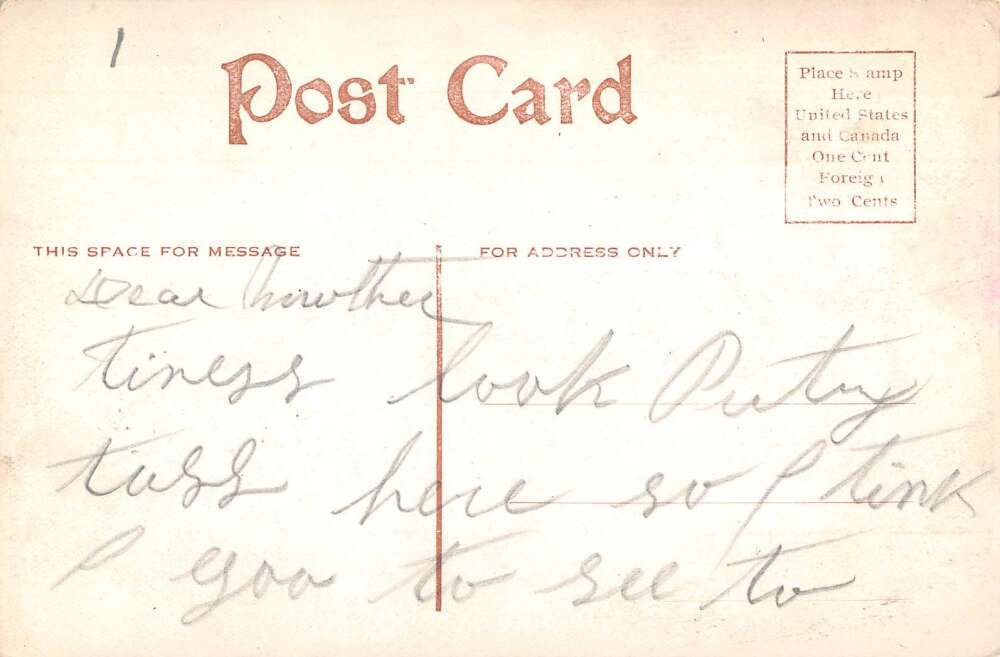 Post Card
Place Stamp
Here
United States
and Canada
One Cent
Foreign
Two Cents
THIS SPACE FOR MESSAGE
FOR ADDRESS ONLY
Dear Mowther
tinegs look Putry
tugg here so I tink
I goo to see to